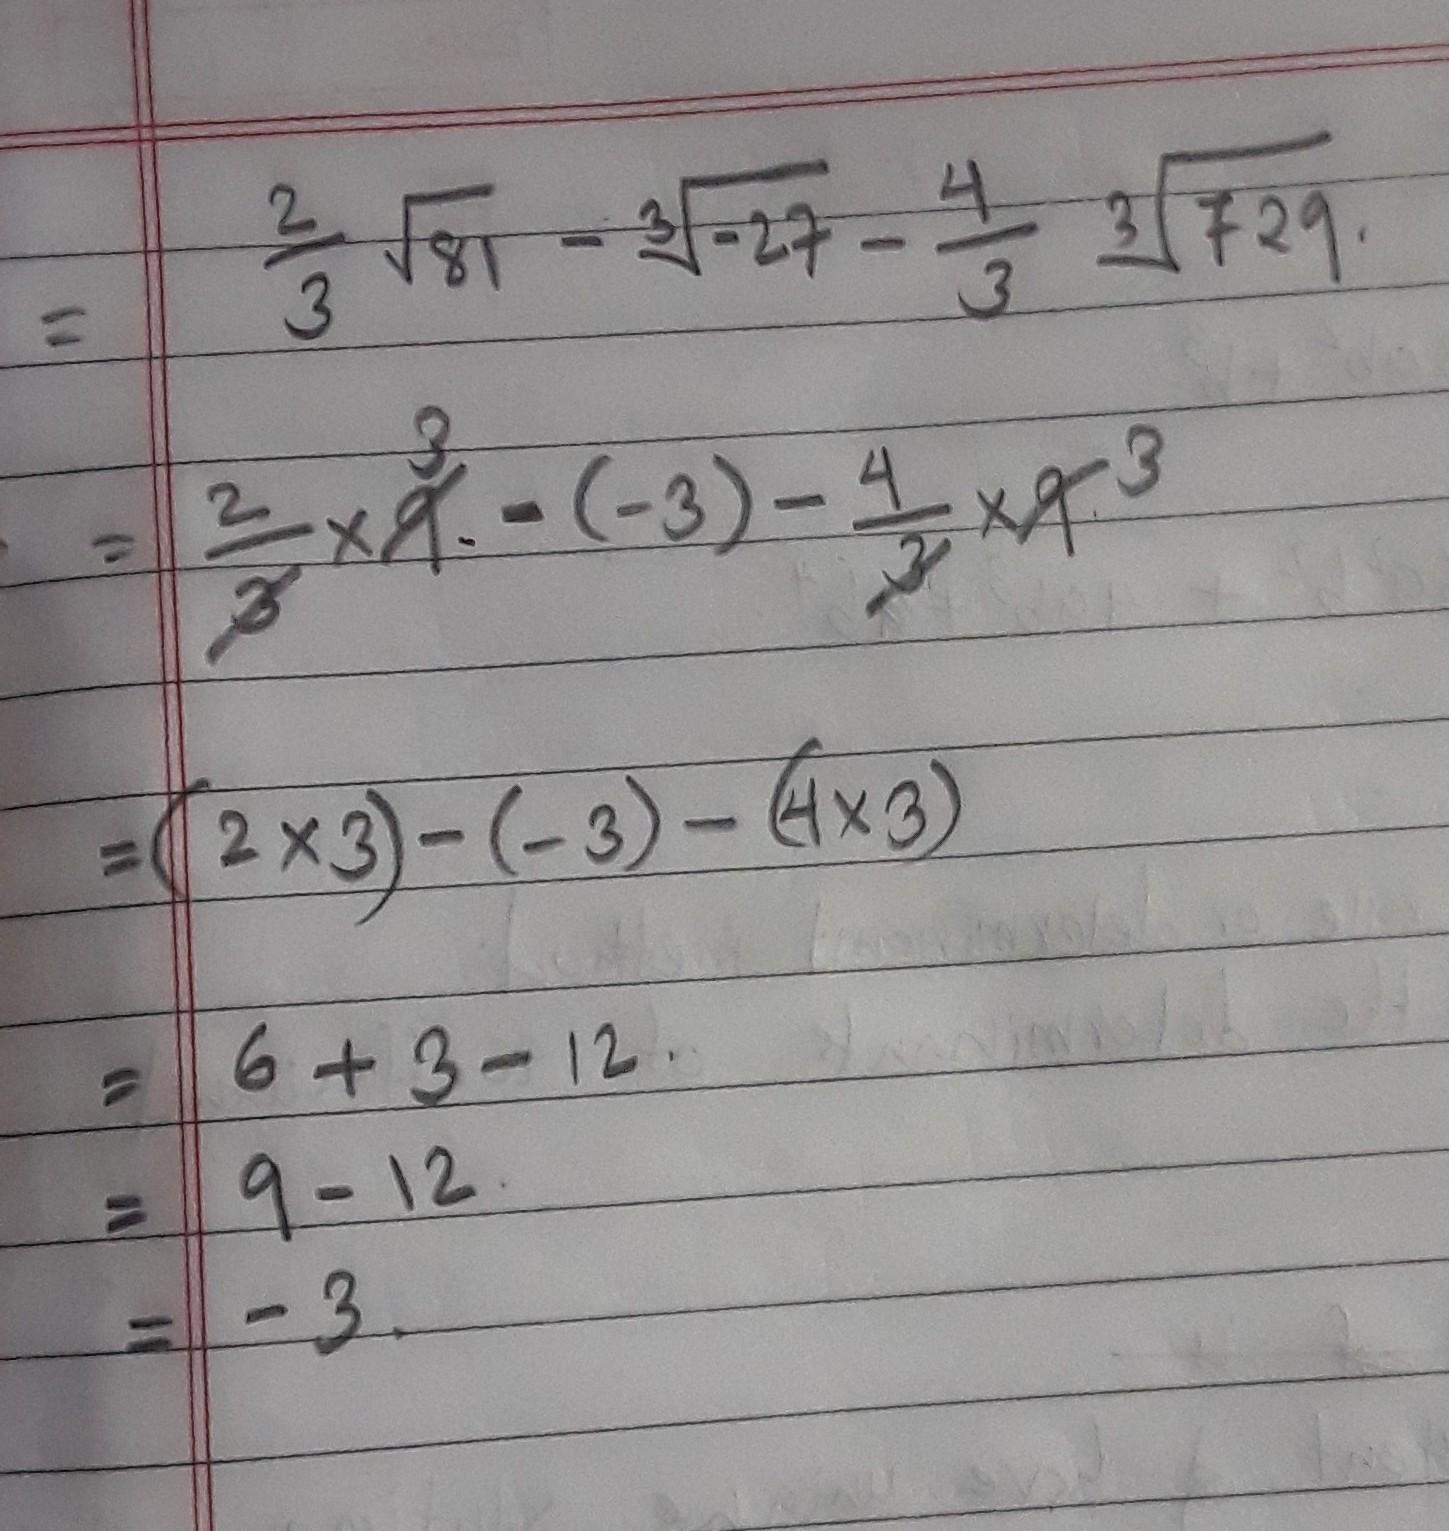 = 2/3 √81 - ∛-27 - 4/3 ∛729.
= 2/3 × 9 3. - (-3) - 4/3 × 9. 3
= (2 × 3) - (-3) - (4 × 3)
= 6 + 3 - 12.
= 9 - 12.
= - 3.